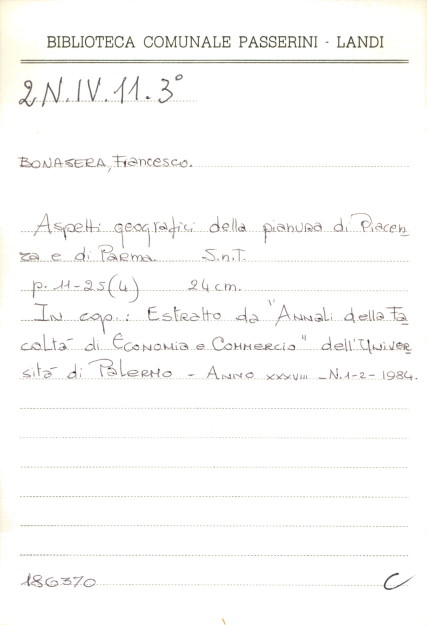 BIBLIOTECA COMUNALE PASSERINI - LANDI
2N.IV.11.3°
BONASERA, Francesco.
Aspetti geografici della pianura di Piacen
za e di Parma. S.n.T.
p. 11-25(4) 24 cm.
In cop.: Estratto da "Annali della Fa
coltà di Economia e Commercio" dell'Univer
sità di Palermo - Anno XXXVIII - N.1-2- 1984.
186370 C